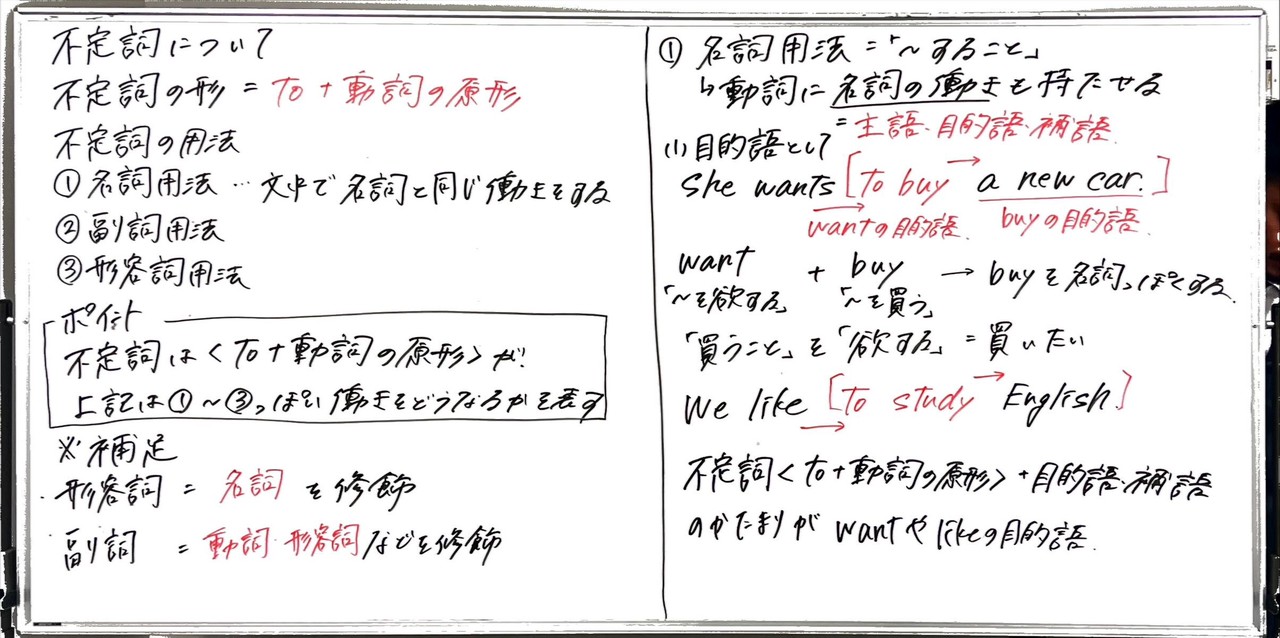 不定詞について
不定詞の形 = to + 動詞の原形
不定詞の用法
① 名詞用法 … 文中で名詞と同じ働きをする
② 副詞用法
③ 形容詞用法
ポイント
不定詞は〈to+動詞の原形〉が、
上記は①〜③っぽい働きをどうなるかを表す
※補足
形容詞 = 名詞 を修飾
副詞 = 動詞・形容詞などを修飾
① 名詞用法 =「〜すること」
↳動詞に名詞の働きを持たせる
= 主語・目的語・補語
(1)目的語として
She wants [to buy → a new car.]
wantの目的語 buyの目的語
want + buy → buyを名詞っぽくする
「〜を欲する」 「〜を買う」
「買うこと」を「欲する」= 買いたい
We like [to study → English]
不定詞〈to+動詞の原形〉+目的語・補語
のかたまりが wantやlikeの目的語